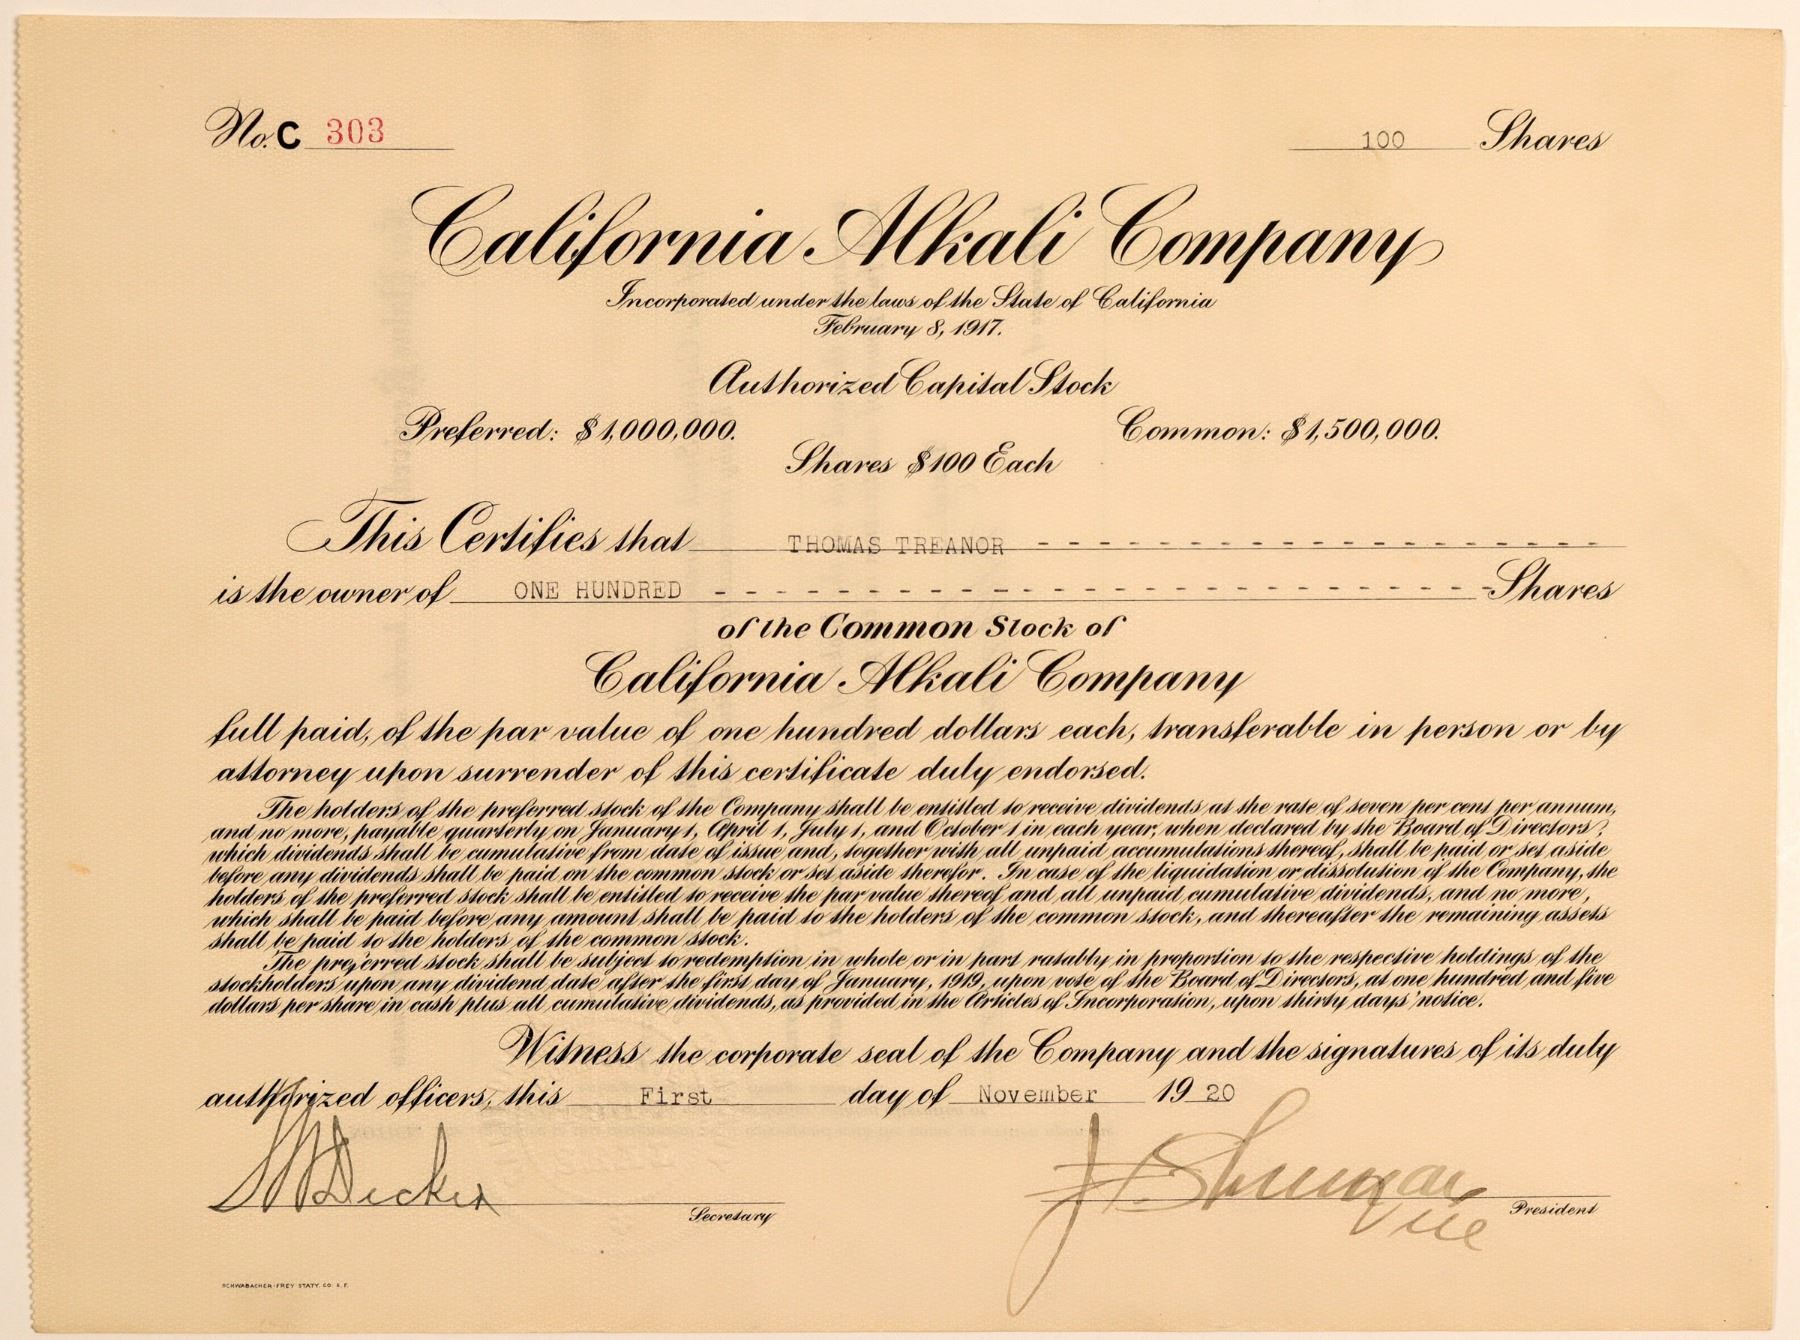 No. C 303
100 Shares
California Alkali Company
Incorporated under the laws of the State of California
February 8, 1917.
Authorized Capital Stock
Preferred: $1,000,000. Common: $1,500,000.
Shares $100 Each
This Certifies that THOMAS TREANOR - - - - - - - - - - - - - - - - - - -
is the owner of ONE HUNDRED - - - - - - - - - - - - - - - - - - - - - - - - - - Shares
of the Common Stock of
California Alkali Company
full paid, of the par value of one hundred dollars each, transferable in person or by
attorney upon surrender of this certificate duly endorsed.
The holders of the preferred stock of the Company shall be entitled to receive dividends at the rate of seven per cent per annum,
and no more, payable quarterly on January 1, April 1, July 1, and October 1 in each year, when declared by the Board of Directors,
which dividends shall be cumulative from date of issue and, together with all unpaid accumulations thereof, shall be paid or set aside
before any dividends shall be paid on the common stock or set aside therefor. In case of the liquidation or dissolution of the Company, the
holders of the preferred stock shall be entitled to receive the par value thereof and all unpaid cumulative dividends, and no more,
which shall be paid before any amount shall be paid to the holders of the common stock, and thereafter the remaining assets
shall be paid to the holders of the common stock.
The preferred stock shall be subject to redemption in whole or in part ratably in proportion to the respective holdings of the
stockholders upon any dividend date after the first day of January, 1919, upon vote of the Board of Directors, at one hundred and five
dollars per share in cash plus all cumulative dividends, as provided in the Articles of Incorporation, upon thirty days' notice.
Witness the corporate seal of the Company and the signatures of its duly
authorized officers, this First day of November 1920
Decker
Secretary
Vice President
SCHWABACHER-FREY STATY. CO. S. F.